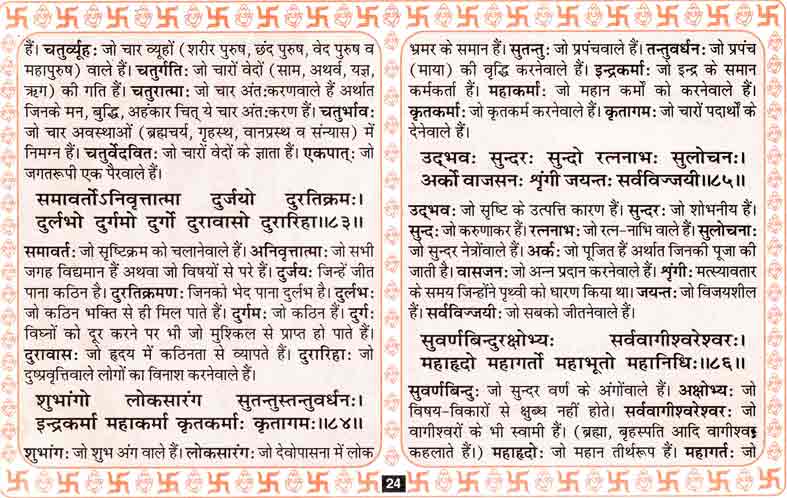 हैं। चतुर्व्यूह: जो चार व्यूहों (शरीर पुरुष, छंद पुरुष, वेद पुरुष व
महापुरुष) वाले हैं। चतुर्गति: जो चारों वेदों (साम, अथर्व, यज्ञ,
ऋग) की गति हैं। चतुरात्मा: जो चार अंत:करणवाले हैं अर्थात
जिनके मन, बुद्धि, अहंकार चित् ये चार अंत:करण हैं। चतुर्भाव:
जो चार अवस्थाओं (ब्रह्मचर्य, गृहस्थ, वानप्रस्थ व संन्यास) में
निमग्न हैं। चतुर्वेदवित: जो चारों वेदों के ज्ञाता हैं। एकपात्: जो
जगतरूपी एक पैरवाले हैं।
समावर्तोऽनिवृत्तात्मा दुर्जयो दुरतिक्रमः।
दुर्लभो दुर्गमो दुर्गो दुरावासो दुरारिहा॥८३॥
समावर्त: जो सृष्टिक्रम को चलानेवाले हैं। अनिवृत्तात्मा: जो सभी
जगह विद्यमान हैं अथवा जो विषयों से परे हैं। दुर्जय: जिन्हें जीत
पाना कठिन है। दुरतिक्रमण: जिनको भेद पाना दुर्लभ है। दुर्लभ:
जो कठिन भक्ति से ही मिल पाते हैं। दुर्गम: जो कठिन हैं। दुर्ग:
विघ्नों को दूर करने पर भी जो मुश्किल से प्राप्त हो पाते हैं।
दुरावास: जो हृदय में कठिनता से व्यापते हैं। दुरारिहा: जो
दुष्प्रवृत्तिवाले लोगों का विनाश करनेवाले हैं।
शुभांगो लोकसारंग सुतन्तुस्तन्तुवर्धनः।
इन्द्रकर्मा महाकर्मा कृतकर्माः कृतागमः॥८४॥
शुभांग: जो शुभ अंग वाले हैं। लोकसारंग: जो देवोपासना में लोक
भ्रमर के समान हैं। सुतन्तु: जो प्रपंचवाले हैं। तन्तुवर्धन: जो प्रपंच
(माया) की वृद्धि करनेवाले हैं। इन्द्रकर्मा: जो इन्द्र के समान
कर्मकर्ता हैं। महाकर्मा: जो महान कर्मों को करनेवाले हैं।
कृतकर्मा: जो कृतकर्म करनेवाले हैं। कृतागम: जो चारों पदार्थों के
देनेवाले हैं।
उद्भवः सुन्दरः सुन्दो रत्ननाभः सुलोचनः।
अर्को वाजसनः श्रृंगी जयन्तः सर्वविज्जयी॥८५॥
उद्भव: जो सृष्टि के उत्पत्ति कारण हैं। सुन्दर: जो शोभनीय हैं।
सुन्द: जो करुणाकर हैं। रत्ननाभ: जो रत्न-नाभि वाले हैं। सुलोचना:
जो सुन्दर नेत्रोंवाले हैं। अर्क: जो पूजित हैं अर्थात जिनकी पूजा की
जाती है। वासजन: जो अन्न प्रदान करनेवाले हैं। श्रृंगी: मत्स्यावतार
के समय जिन्होंने पृथ्वी को धारण किया था। जयन्त: जो विजयशील
हैं। सर्वविज्जयी: जो सबको जीतनेवाले हैं।
सुवर्णबिन्दुरक्षोभ्यः सर्ववागीश्वरेश्वरः।
महाहृदो महागर्तो महाभूतो महानिधिः॥८६॥
सुवर्णबिन्दु: जो सुन्दर वर्ण के अंगोंवाले हैं। अक्षोभ्य: जो
विषय-विकारों से क्षुब्ध नहीं होते। सर्ववागीश्वरेश्वर: जो
वागीश्वरों के भी स्वामी हैं। (ब्रह्मा, बृहस्पति आदि वागीश्वर
कहलाते हैं।) महाहृदो: जो महान तीर्थरूप हैं। महागर्त: जो
24